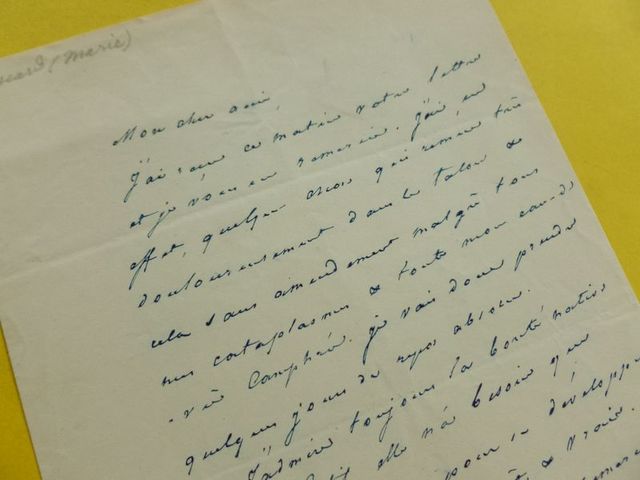 (Marie)
Mon cher ami,
J'ai reçu ce matin votre lettre
et je vous en remercie. J'ai, en
effet, quelque chose qui remue très
douloureusement dans le talon &
cela sans amendement malgré tous
mes cataplasmes & toute mon eau-de
-vie camphrée. je vais donc prendre
quelques jours de repos absolu.
J'admire toujours la bonté native
elle n'a besoin que
pour se développer
& vraie.